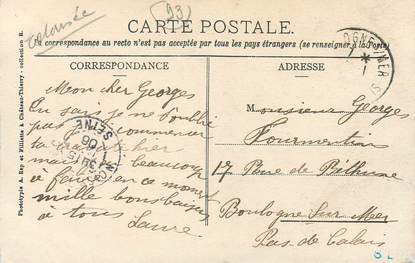 colorisée
(93)
CARTE POSTALE.
La correspondance au recto n'est pas acceptée par tous les pays étrangers (se renseigner à la Poste)
CORRESPONDANCE
ADRESSE
Mon cher Georges
Tu sais je ne t'oublie
pas commencer
hier
mais beaucoup
à faire en ce moment
mille bons baisers
à tous Laure
Monsieur Georges
Fourmentin
17 Rue de Béthune
Boulogne Sur Mer
Pas de Calais
OGNE S MER
SEINE
06
Phototypie A. Rep et Filliette à Château-Thierry - collection R.